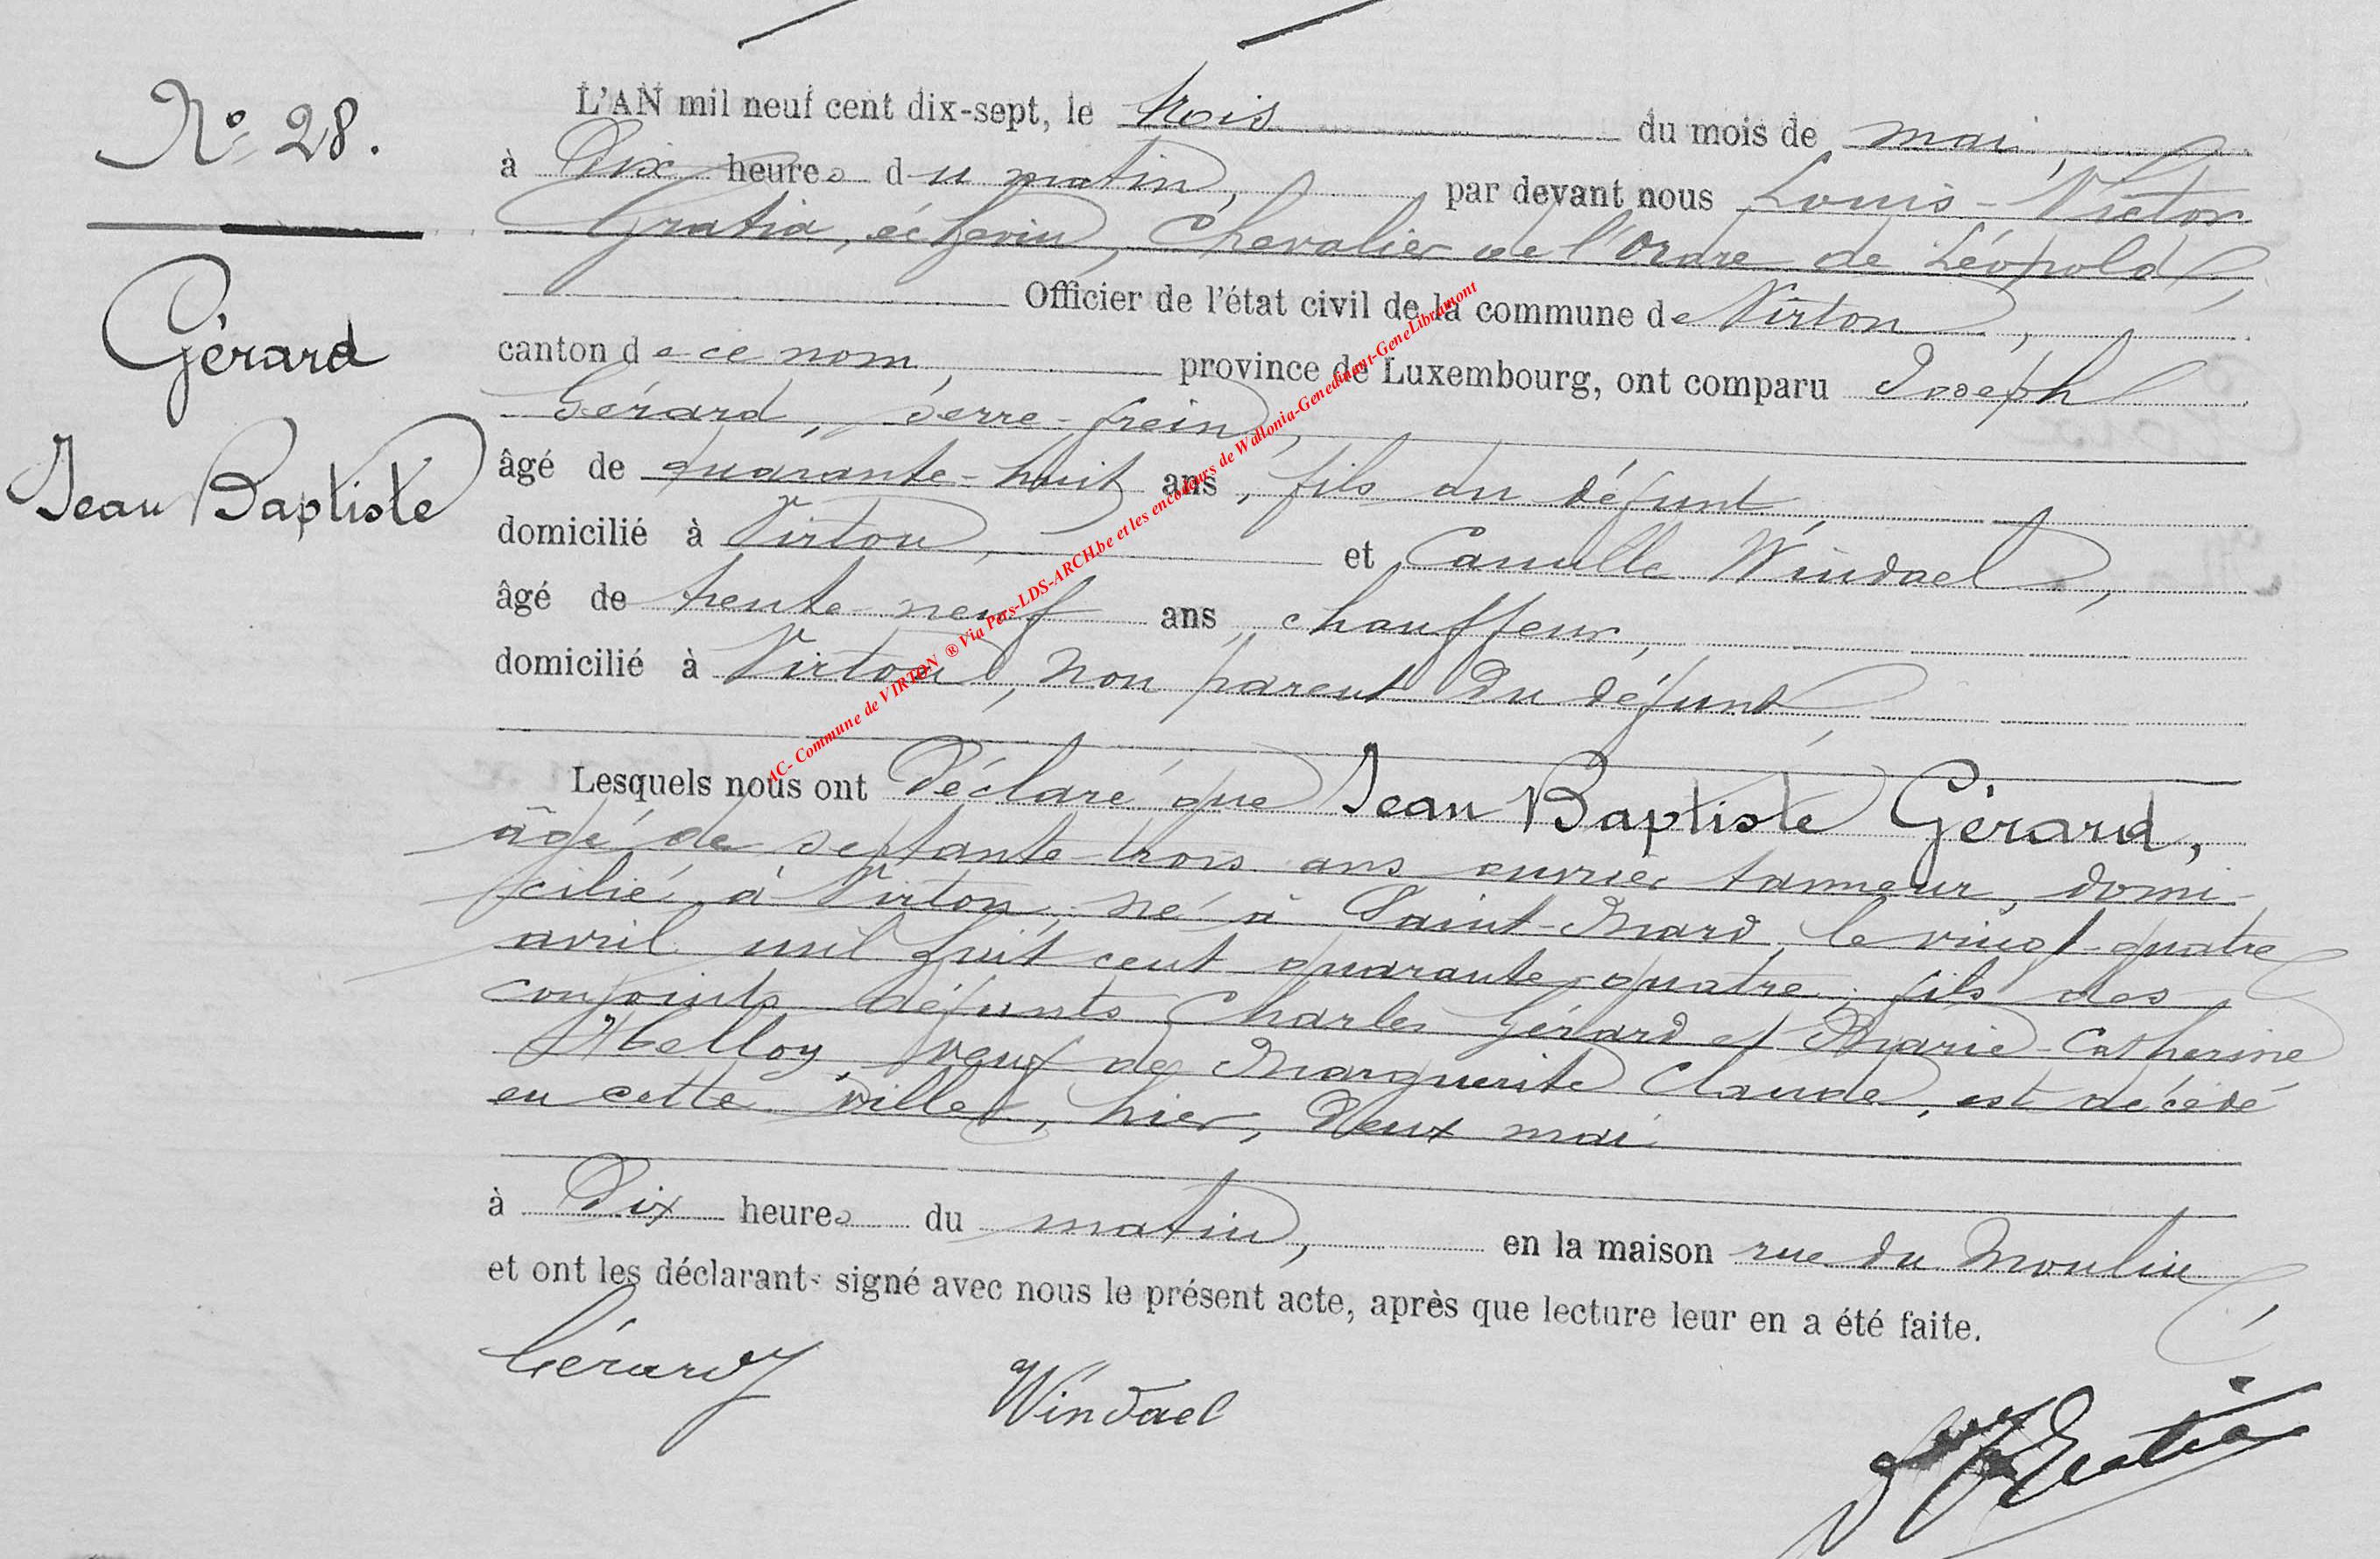 N° 28.
Gérard
Jean Baptiste
L'AN mil neuf cent dix-sept, le trois du mois de mai,
à Dix heures du matin, par devant nous Louis-Victor
Gratia, échevin, Chevalier de l'Ordre de Léopold,
Officier de l'état civil de la commune de Virton,
canton de ce nom, province de Luxembourg, ont comparu Joseph
Gérard, serre-frein,
âgé de quarante-huit ans, fils du défunt,
domicilié à Virton, et Camille Windael,
âgé de trente-neuf ans, chauffeur,
domicilié à Virton, non parent du défunt,
Lesquels nous ont Déclaré que Jean Baptiste Gérard,
âgé de septante-trois ans ouvrier tanneur, domi-
cilié à Virton, né à Saint-Mard, le vingt-quatre
avril mil huit cent quarante-quatre, fils des
conjoints défunts Charles Gérard et Marie-Catherine
veuf de Marguerite Claude, est décédé
en cette ville, hier, Deux mai
à Dix heures du matin, en la maison rue du Moulin,
et ont les déclarants signé avec nous le présent acte, après que lecture leur en a été faite.
Gérard J
Windael
Gratia
AC- Commune de VIRTON ® Via Pers-LDS-ARCH.be et les encodeurs de Wallonia-Genedinant-GeneLibramont